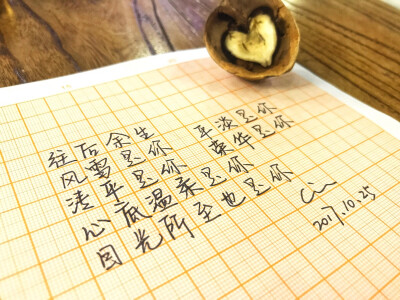 往后余生
风雪是你 平淡是你
清平是你 荣华是你
心底温柔是你
目光所至也是你
2017.10.25